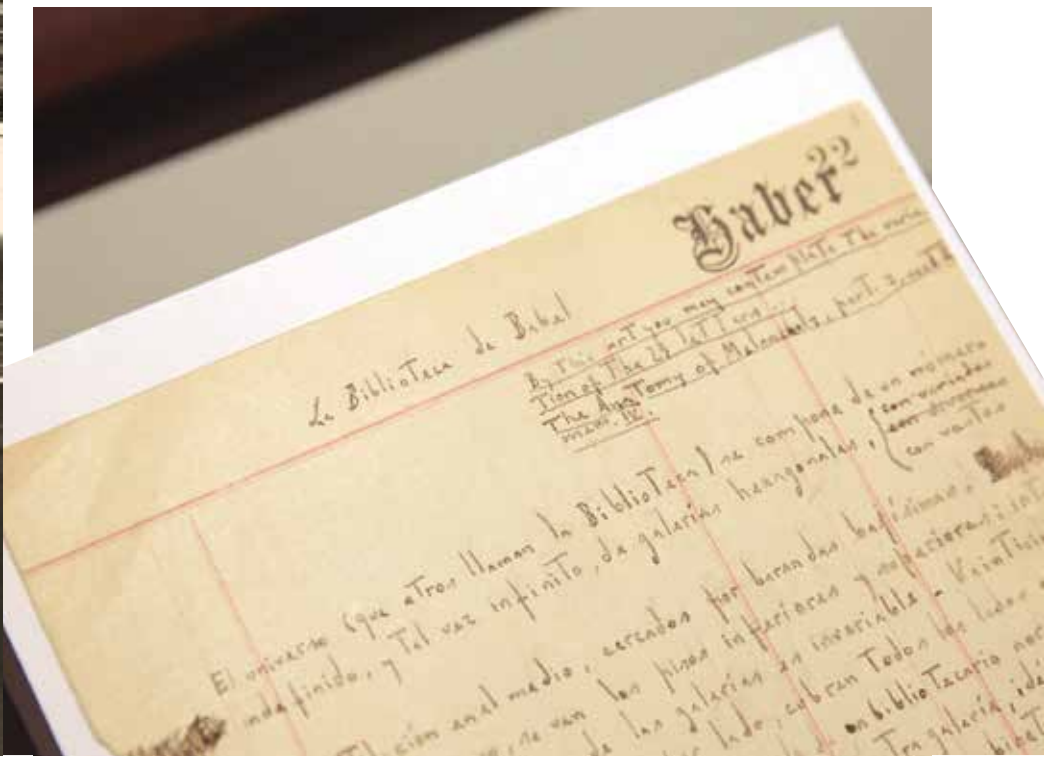 Haber 22
La Biblioteca de Babel
By this art you may contemplate the varia
tion of the 23 letters...
The Anatomy of Melancholy, part. 2, sect. II
mem. IV.
El universo (que otros llaman la Biblioteca) se compone de un número
indefinido, y tal vez infinito, de galerías hexagonales, con variados
con diversos
con vastos
ción en el medio, cercados por barandas bajísimas.
se ven los pisos inferiores y superiores:
de las galerías es invariable. Veintici
lado, cubren todos los lados
un bibliotecario nor
tra galería, idé